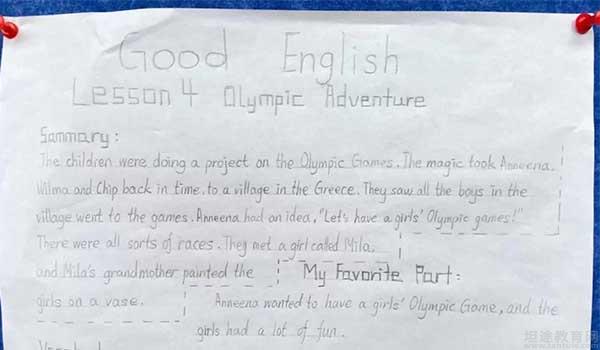 Good English
Lesson 4 Olympic Adventure
Sammary:
The children were doing a project on the Olympic Games. The magic took Anneena.
Wilma and Chip back in time. to a village in the Greece. They saw all the boys in the
village went to the games. Anneena had an idea, "Let's have a girls' Olympic games!"
There were all sorts of races. They met a girl called Mila.
and Mila's grandmother painted the
girls on a vase.
My Favorite Part:
Anneena wanted to have a girls' Olympic Game, and the
girls had a lot of fun.
坦途教育网